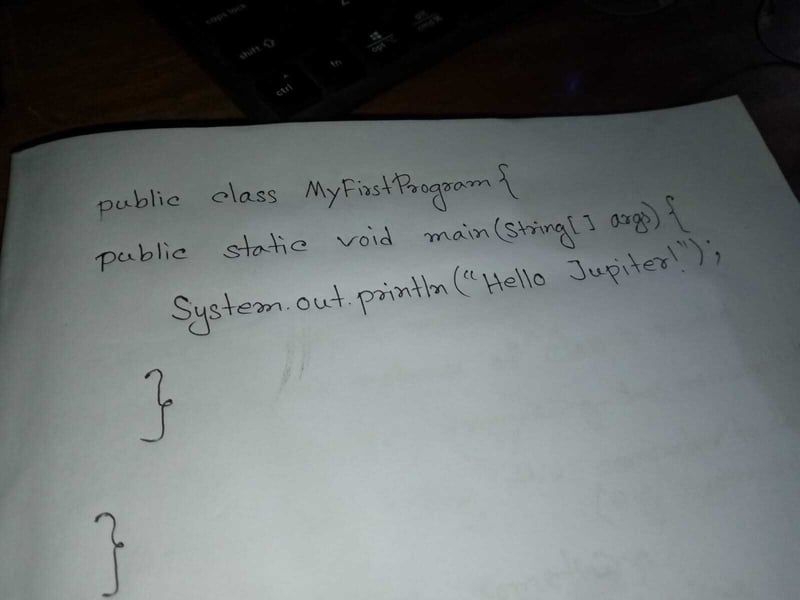 caps lock
shift
fn
ctrl
opt
public class MyFirstProgram{
public static void main(String[] args){
System.out.println("Hello Jupiter!");
}
}